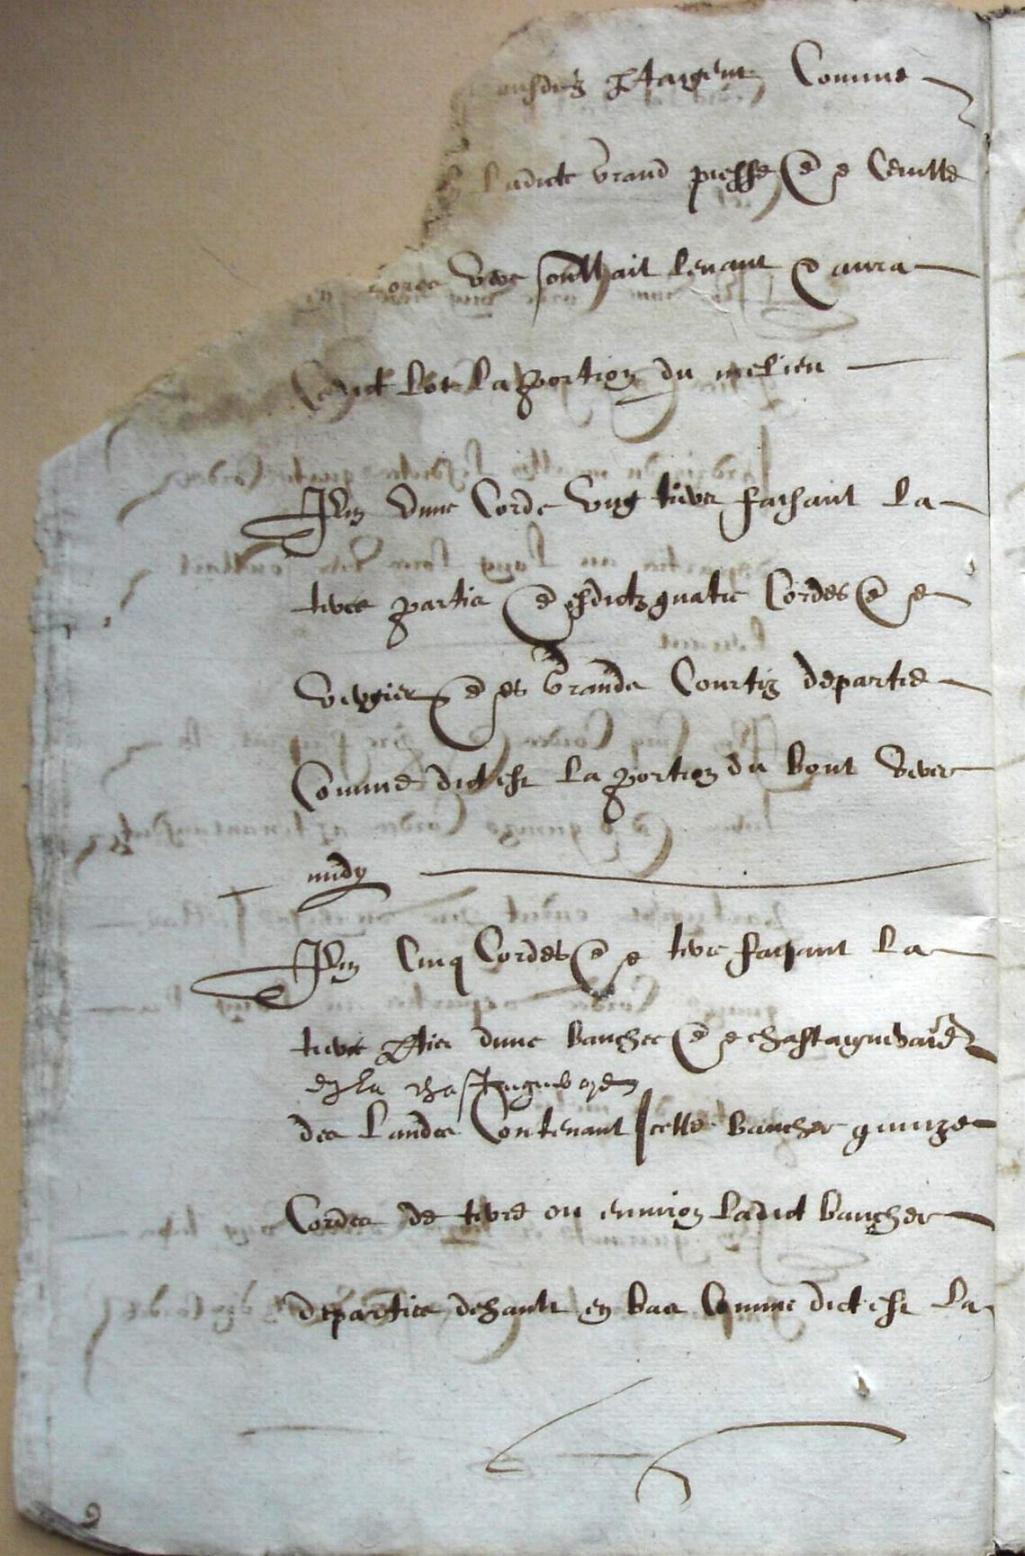 dargent Comme
Ladicte grand piesse de
Souhait tenant & aura
Ledict lot la portion du melieu
Item dune Corde ung tiers faisant la
tierce partie desdictz quatre Cordes de
vergier des grands Courtiz departie
Comme dict est la portion du bout devers
midy
Item Cinq Cordes de terre faisant la
tierce partie dune bauchee de chastaigneraie
de la chastaigneraye
des Landes Contenant Icelle bauchee quinze
Cordes de terre ou environ Ladict bauchee
departie dehault en bas Comme dict est la